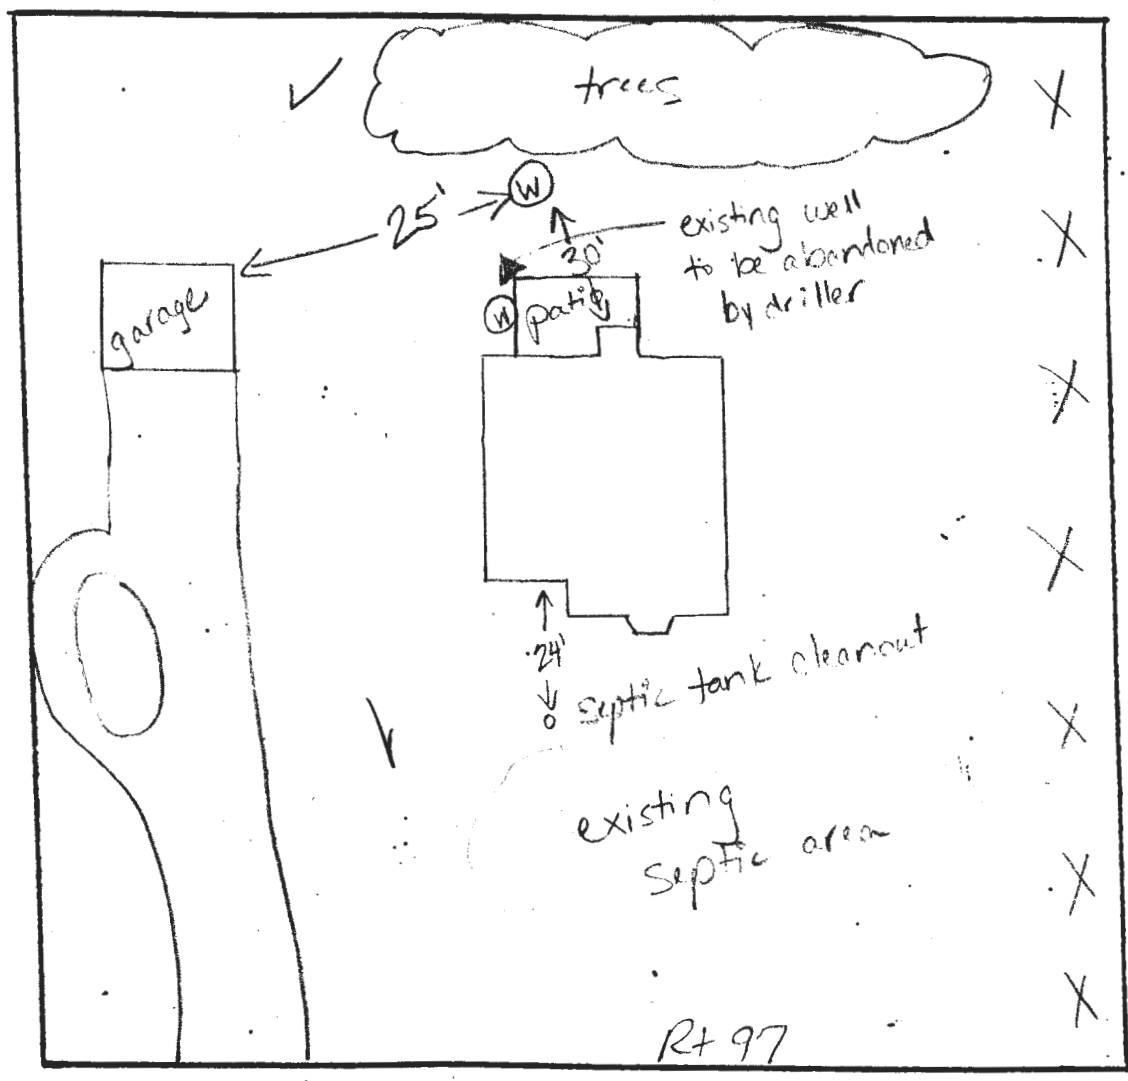 trees
W
25'
existing well
to be abandoned
by driller
30'
garage
W
patio
24'
septic tank cleanout
existing
septic area
Rt 97
X
X
X
X
X
X
X